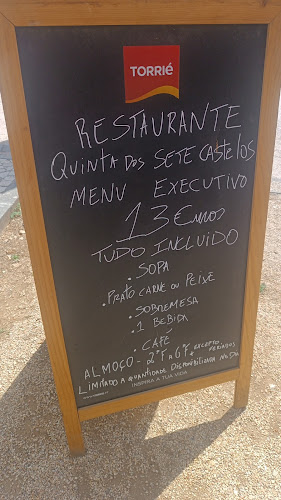 TORRIÉ
RESTAURANTE
QUINTA DOS SETE CASTELOS
MENU EXECUTIVO
13 €UROS
TUDO INCLUIDO
• SOPA
• PRATO CARNE OU PEIXE
• SOBREMESA
• 1 BEBIDA
• CAFÉ
ALMOÇO - 2ªF A 6ªF * EXCEPTO FERIADOS
LIMITADO A QUANTIDADE DISPONIBILIZADA NO DIA
INSPIRA A TUA VIDA